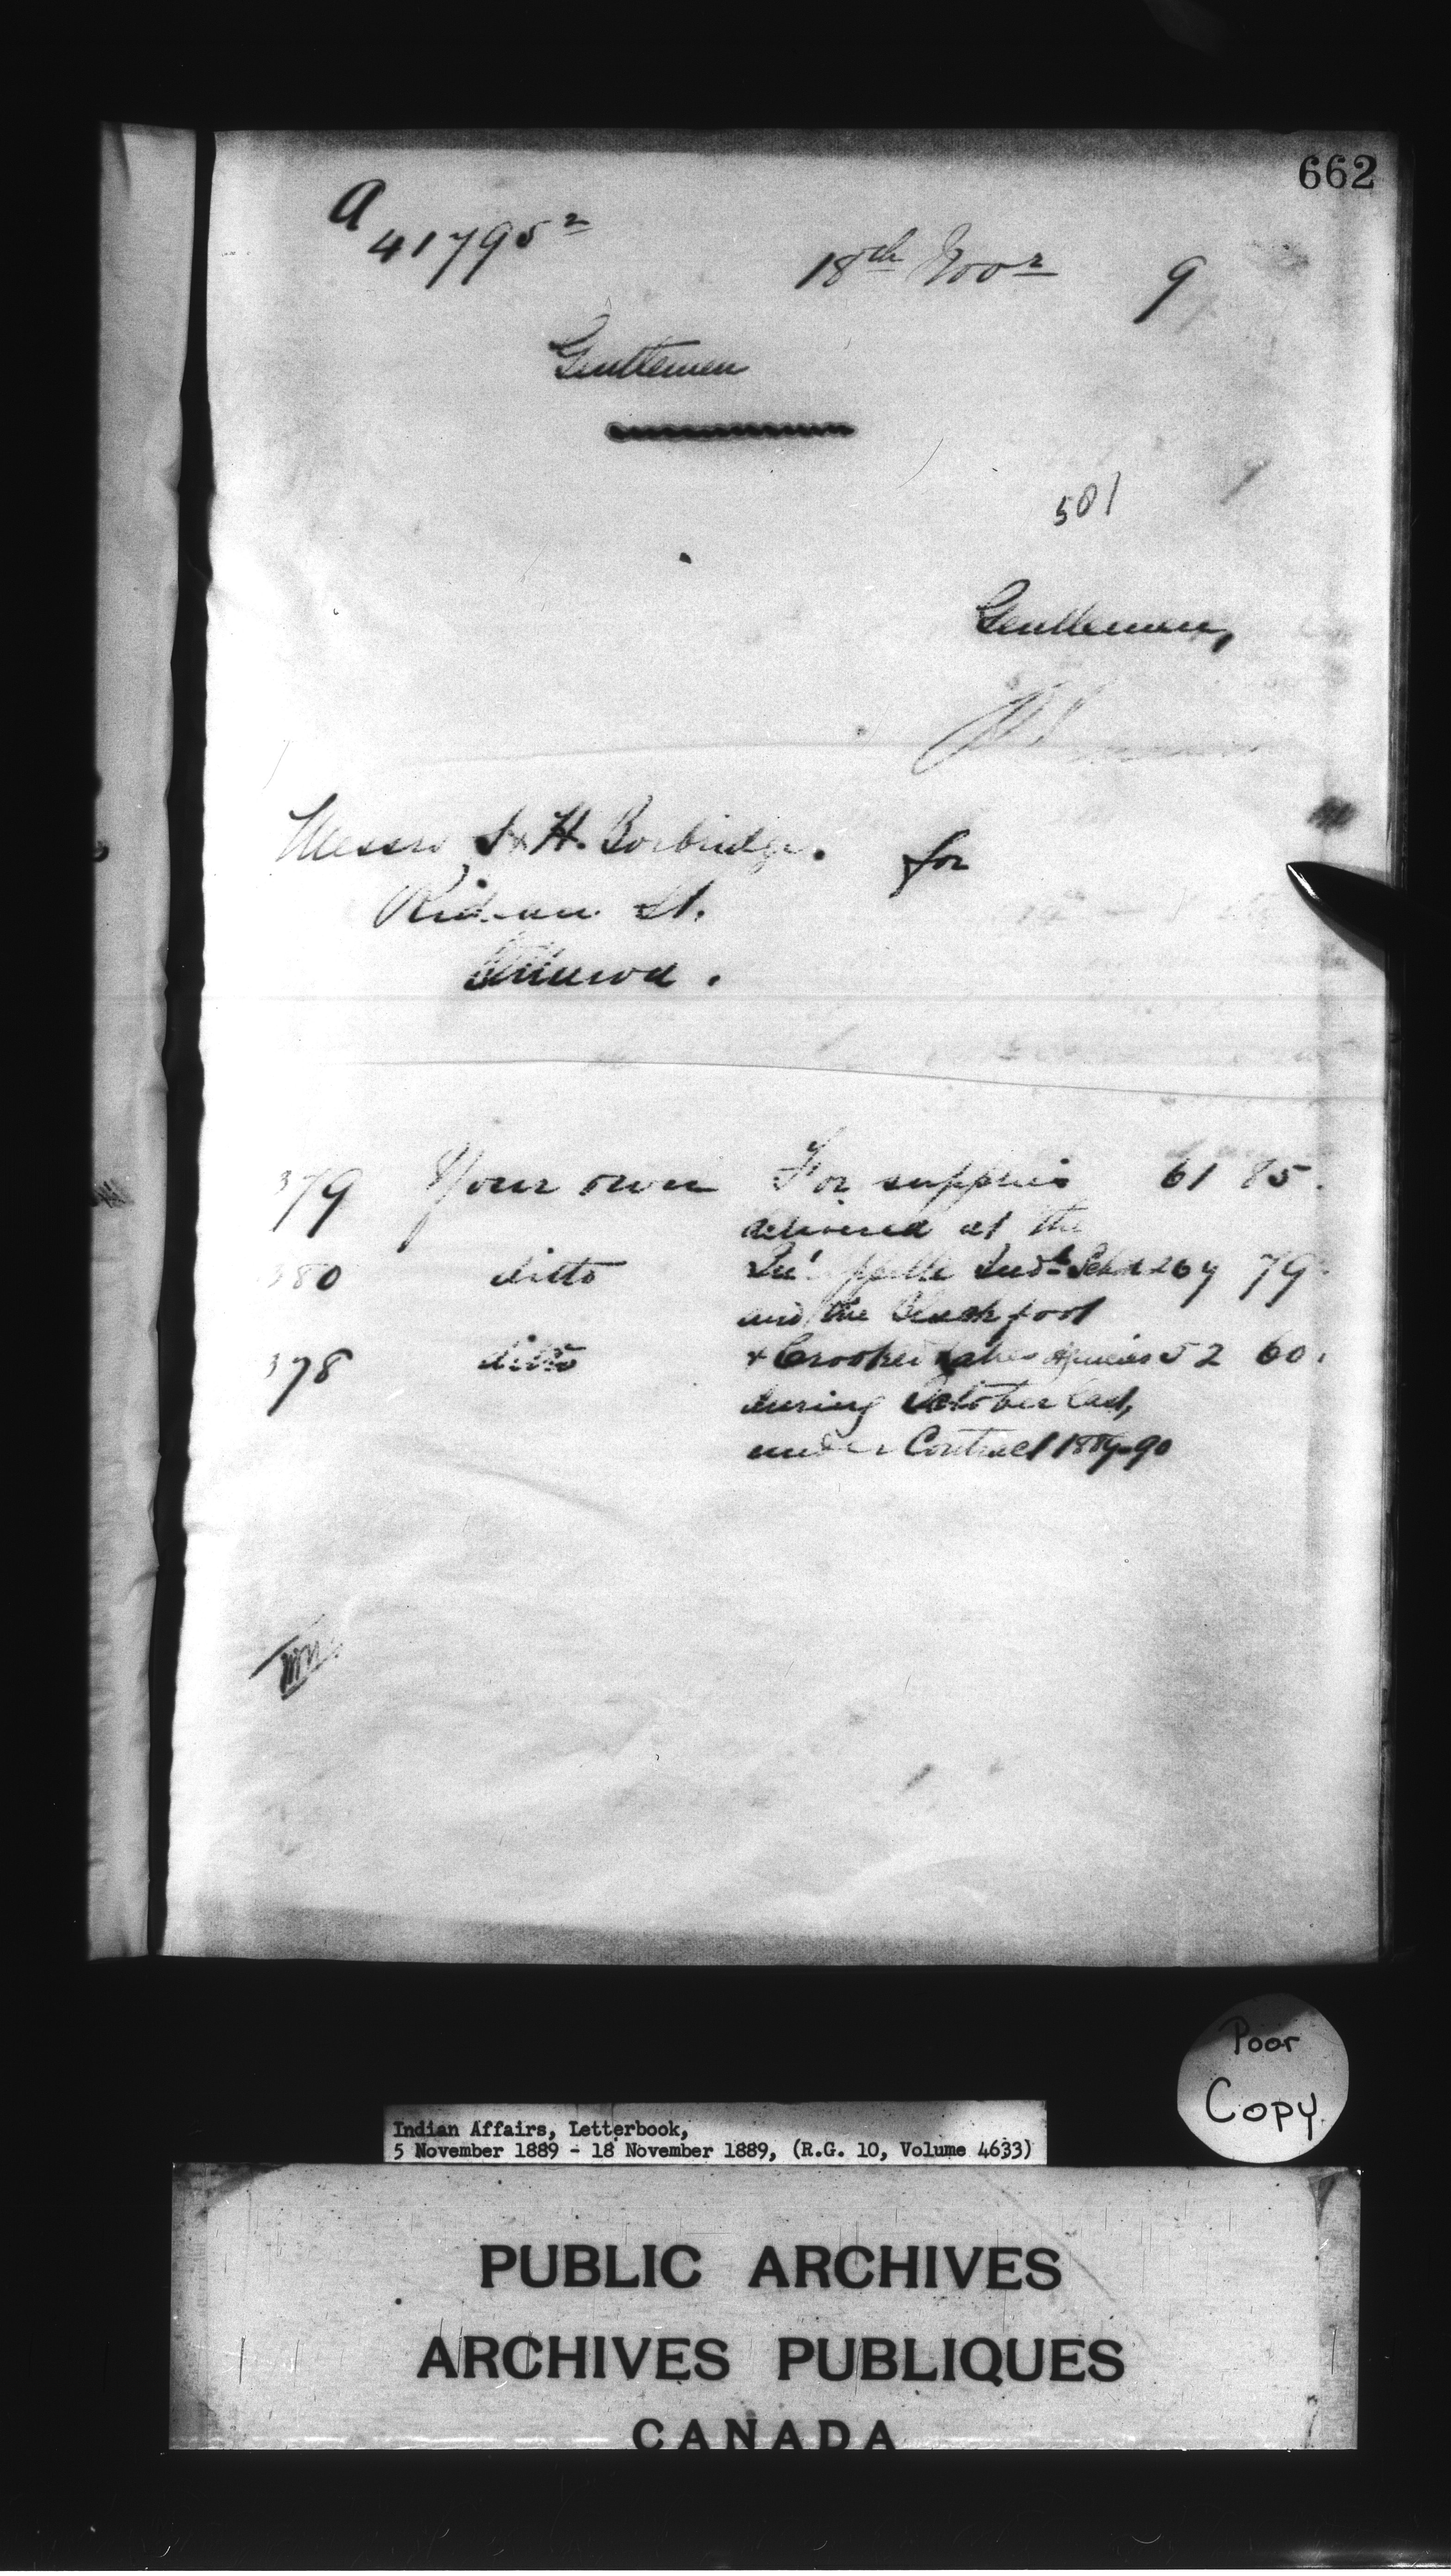 662
A
41795²
18th Novr 9
Gentlemen
501
Gentlemen,
Messrs S & H. Borbridge. for
Rideau St.
Ottawa.
379 Your own For supplies 61 85.
delivered at the
380 ditto Qu'Appelle Indl School 267 79.
and the Blackfoot
378 ditto & Crooked Lakes Agencies 52 60.
during October last,
under Contract 1889-90
Poor
Copy
Indian Affairs, Letterbook,
5 November 1889 - 18 November 1889, (R.G. 10, Volume 4633)
PUBLIC ARCHIVES
ARCHIVES PUBLIQUES
CANADA